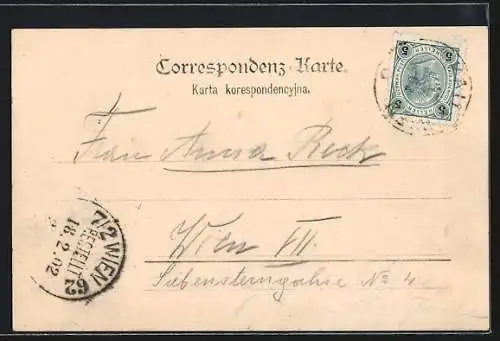 Correspondenz-Karte.
Karta korespondencyjna.
Frau Anna Reck
Wien VII.
Siebensterngasse No 4
2 WIEN 62
BESTELLT
18.2.02
5
5
5
5